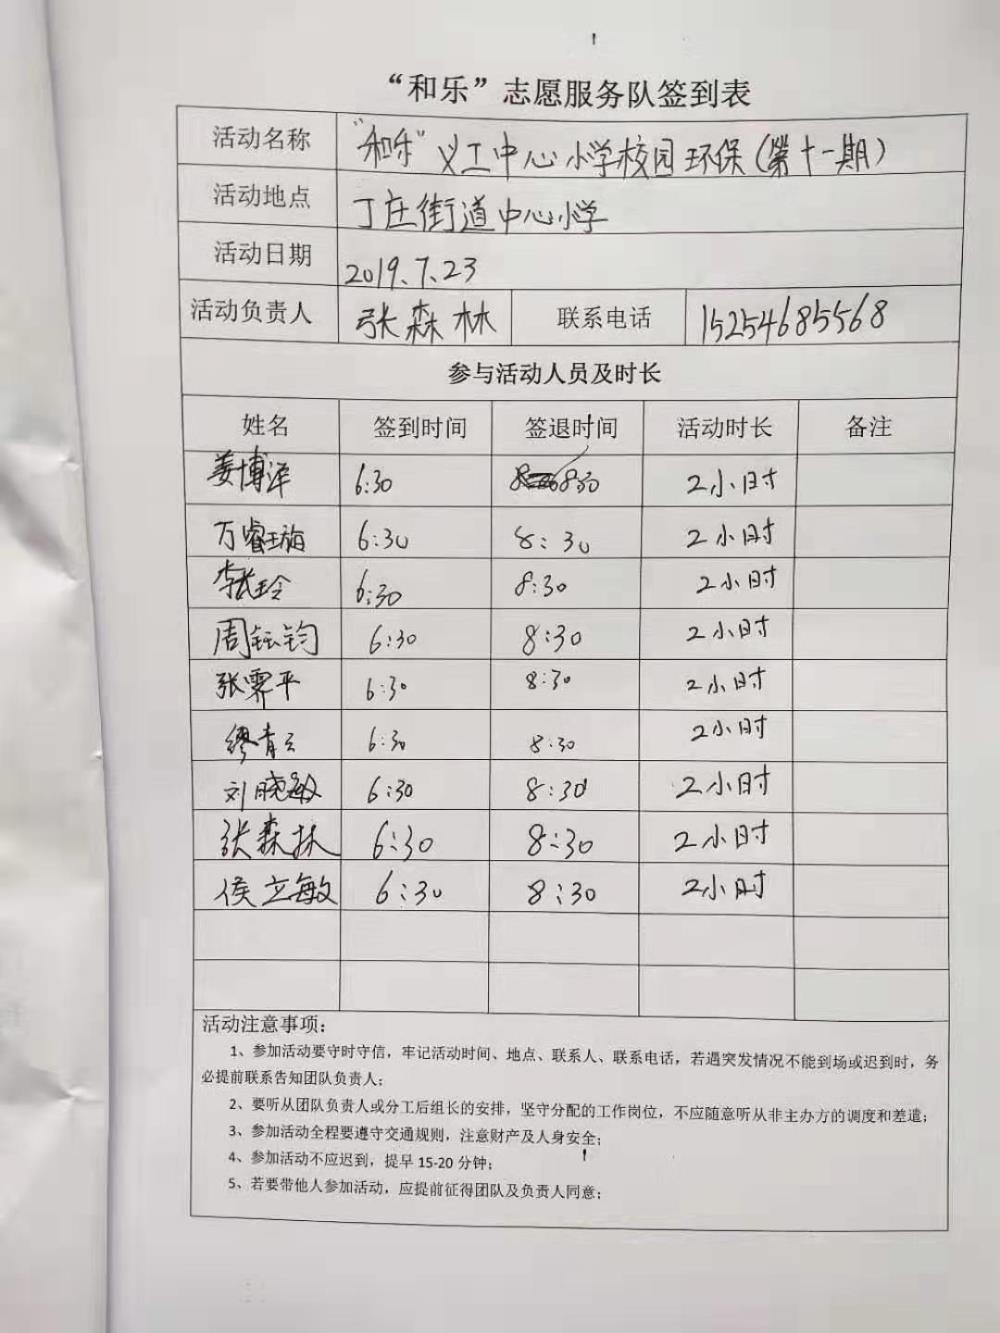 “和乐”志愿服务队签到表
活动名称 “和乐”义工中心小学校园环保（第十一期）
活动地点 丁庄街道中心小学
活动日期 2019.7.23
活动负责人 张森林 联系电话 15254685568
参与活动人员及时长
姓名 签到时间 签退时间 活动时长 备注
姜博洋 6:30 8:30 2小时
万睿璇 6:30 8:30 2小时
李长玲 6:30 8:30 2小时
周钰钧 6:30 8:30 2小时
张霁平 6:30 8:30 2小时
缪青云 6:30 8:30 2小时
刘晓敏 6:30 8:30 2小时
张森林 6:30 8:30 2小时
侯立敏 6:30 8:30 2小时
活动注意事项：
1、参加活动要守时守信，牢记活动时间、地点、联系人、联系电话，若遇突发情况不能到场或迟到时，务
必提前联系告知团队负责人；
2、要听从团队负责人或分工后组长的安排，坚守分配的工作岗位，不应随意听从非主办方的调度和差遣；
3、参加活动全程要遵守交通规则，注意财产及人身安全；
4、参加活动不应迟到，提早 15-20 分钟；
5、若要带他人参加活动，应提前征得团队及负责人同意；